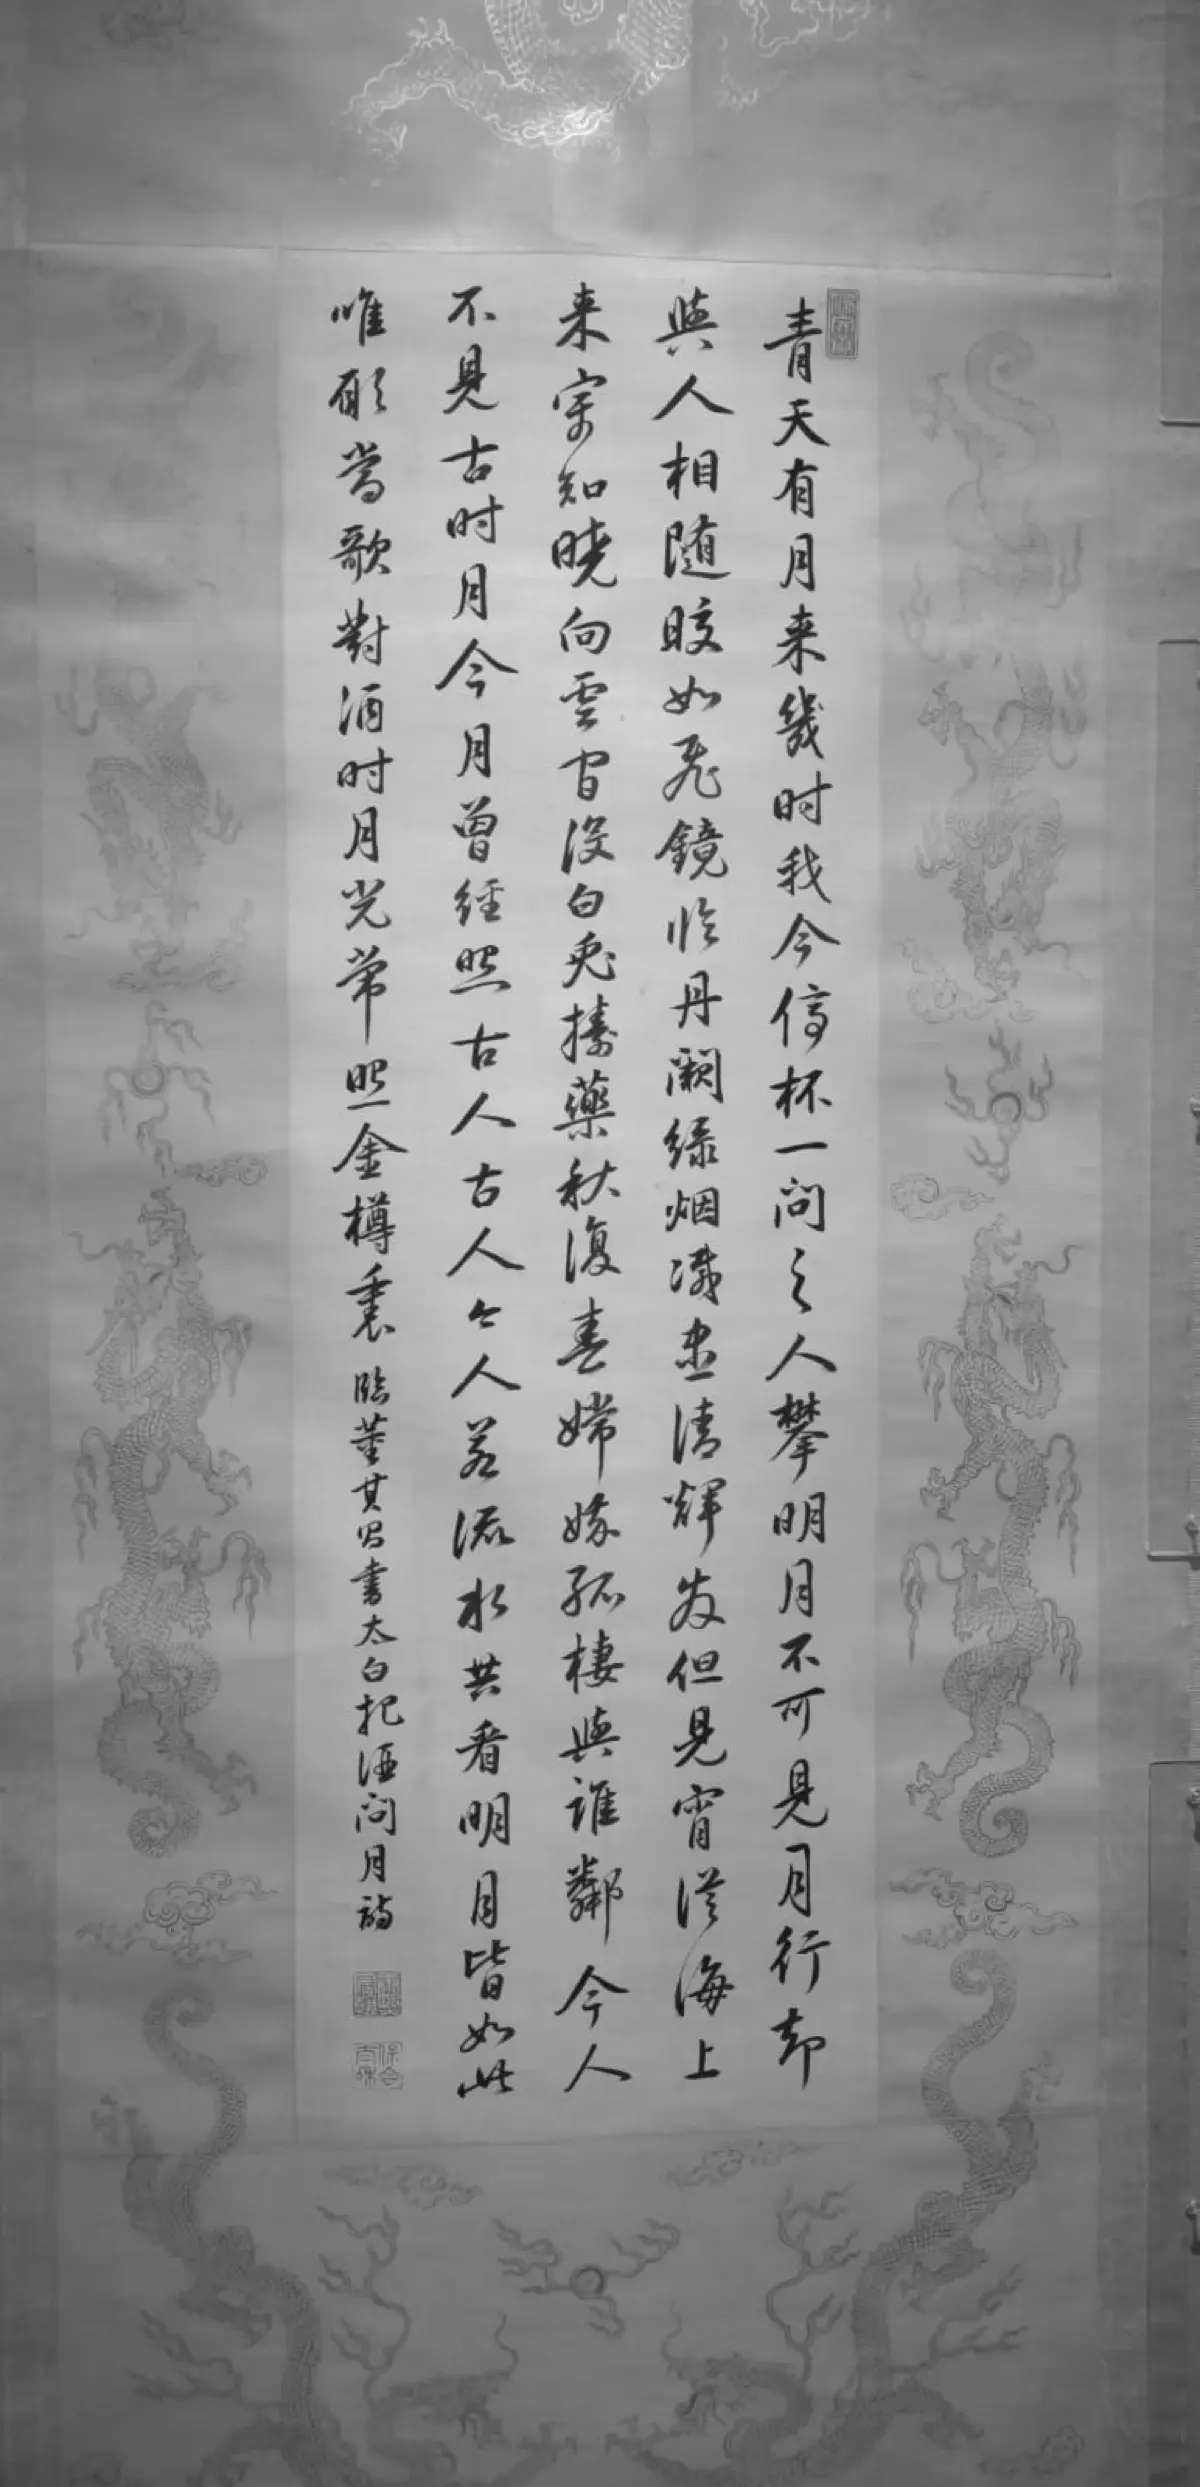 青天有月来幾时我今停杯一问之人攀明月不可见月行却
與人相随皎如飞鏡临丹阙绿烟灭尽清辉发但见宵从海上
来寧知晓向雲间没白兔捣藥秋復春嫦娥孤棲與谁鄰今人
不见古时月今月曾经照古人古人今人若流水共看明月皆如此
唯願當歌對酒时月光常照金樽裏臨董其昌書太白把酒问月詩